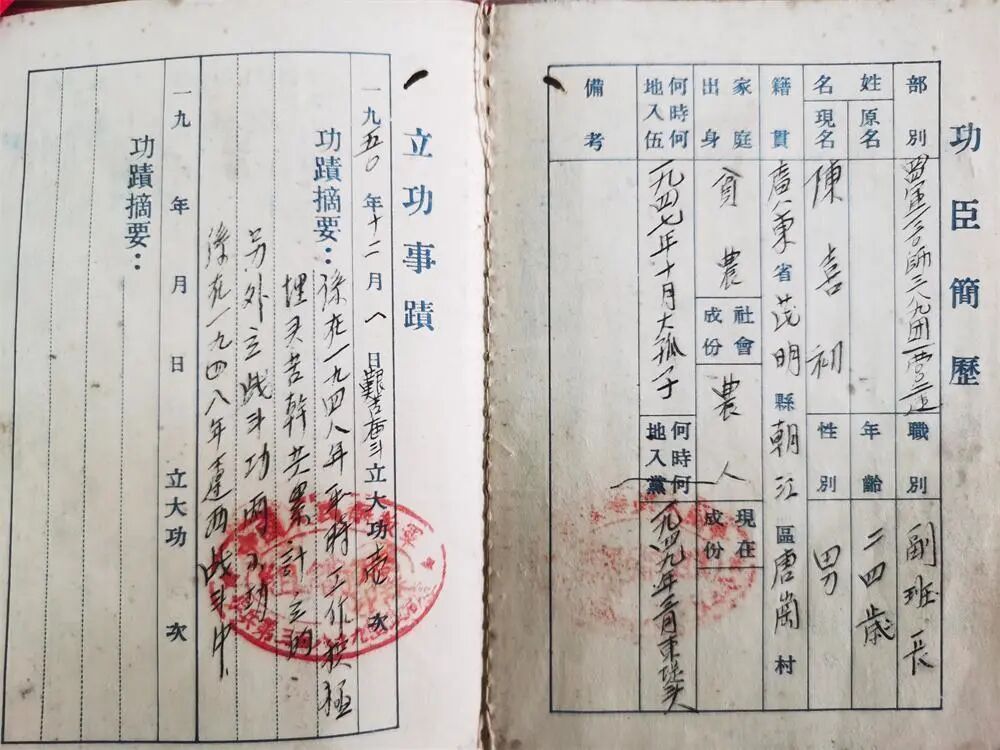 功臣簡歷
部別 師三八九团一营二連 職別 副班長
姓名 原名 年齡 二四歲
現名 陳喜初 性別 男
籍貫 廣東省茂明縣朝江區唐崗村
家庭出身 貧農 社會成份 農人 現在成份
何時何地入伍 一九四七年十月大孤子 何時何地入黨 一九四九年三月東
備考
立功事蹟
一九五〇年十二月八日艱苦奋斗立大功壱次
功蹟摘要：係在一九四八年平時工作積極
埋头苦幹共累計立的
另外立战斗功两小功
係在一九四八年遼西战斗中
一九 年 月 日 立大功 次
功蹟摘要：